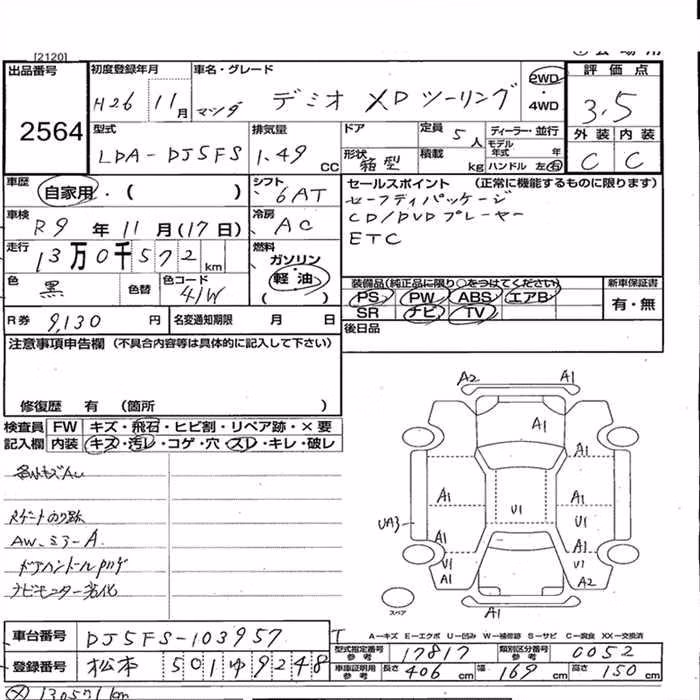 [2120]
出品番号 初度登録年月 車名・グレード 2WD 評価点
2564 H26 11月 マツダ デミオ XDツーリング ・ 3.5
4WD
外装 内装
型式 排気量 ドア 定員 5人 ディーラー・並行
モデル年式 年
LDA-DJ5FS 1.49cc 形状 箱型 積載 kg ハンドル 左・右 C C
車歴 自家用・( ) シフト 6AT セールスポイント (正常に機能するものに限ります)
セーフティパッケージ
車検 R9年11月(17日) 冷房 AC CD/DVDプレーヤー
ETC
走行 13万0千572km 燃料 ガソリン
軽油
( )
色 黒 色替 色コード 41W
装備品(純正品に限り○をつけてください) 新車保証書
PS PW ABS エアB 有・無
SR ナビ TV
R券 9,130円 名変通知期限 月 日
後日品
注意事項申告欄 (不具合内容等は具体的に記入して下さい)
修復歴 有 (箇所 )
検査員 FW キズ・飛石・ヒビ割・リペア跡・×要
記入欄 内装 キズ・汚レ・コゲ・穴・スレ・キレ・破レ
A2 A1
A1
A1 A1
A1 U1 A1
UA3 U1
A1 A1
U1 U1
A1 A2
A1
スペア
AW、ミラーA
ドアハンドルハゲ
ナビモニター劣化
A―キズ E―エクボ U―凹み W―補修跡 S―サビ C―腐食 XX―交換済
車台番号 DJ5FS-103957
型式指定番号 参考 17817 類別区分番号 参考 0052
登録番号 松本 501ゆ9248
車庫証明用 参考 長さ 406cm 幅 169cm 高さ 150cm
130571km